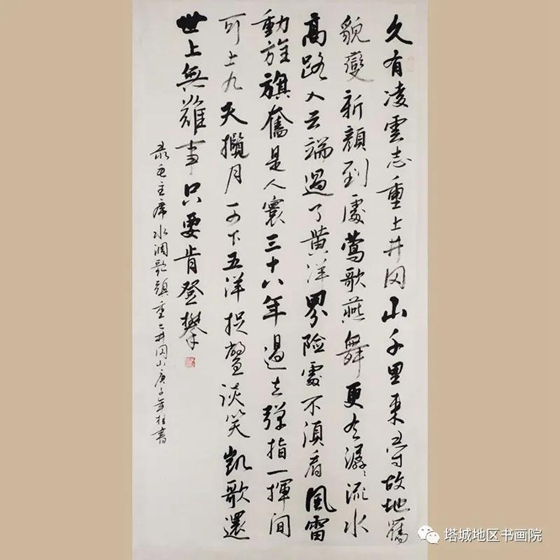 久有凌雲志重上井冈山千里來尋故地舊
貌變新顔到處鶯歌燕舞更有潺〻流水
高路入云端過了黄洋界險處不須看風雷
動旌旗奮是人寰三十八年過去彈指一揮間
可上九天攬月可下五洋捉鱉談笑凱歌還
世上無難事只要肯登攀
录毛主席水调歌頭重上井冈山庚子年書
塔城地区书画院